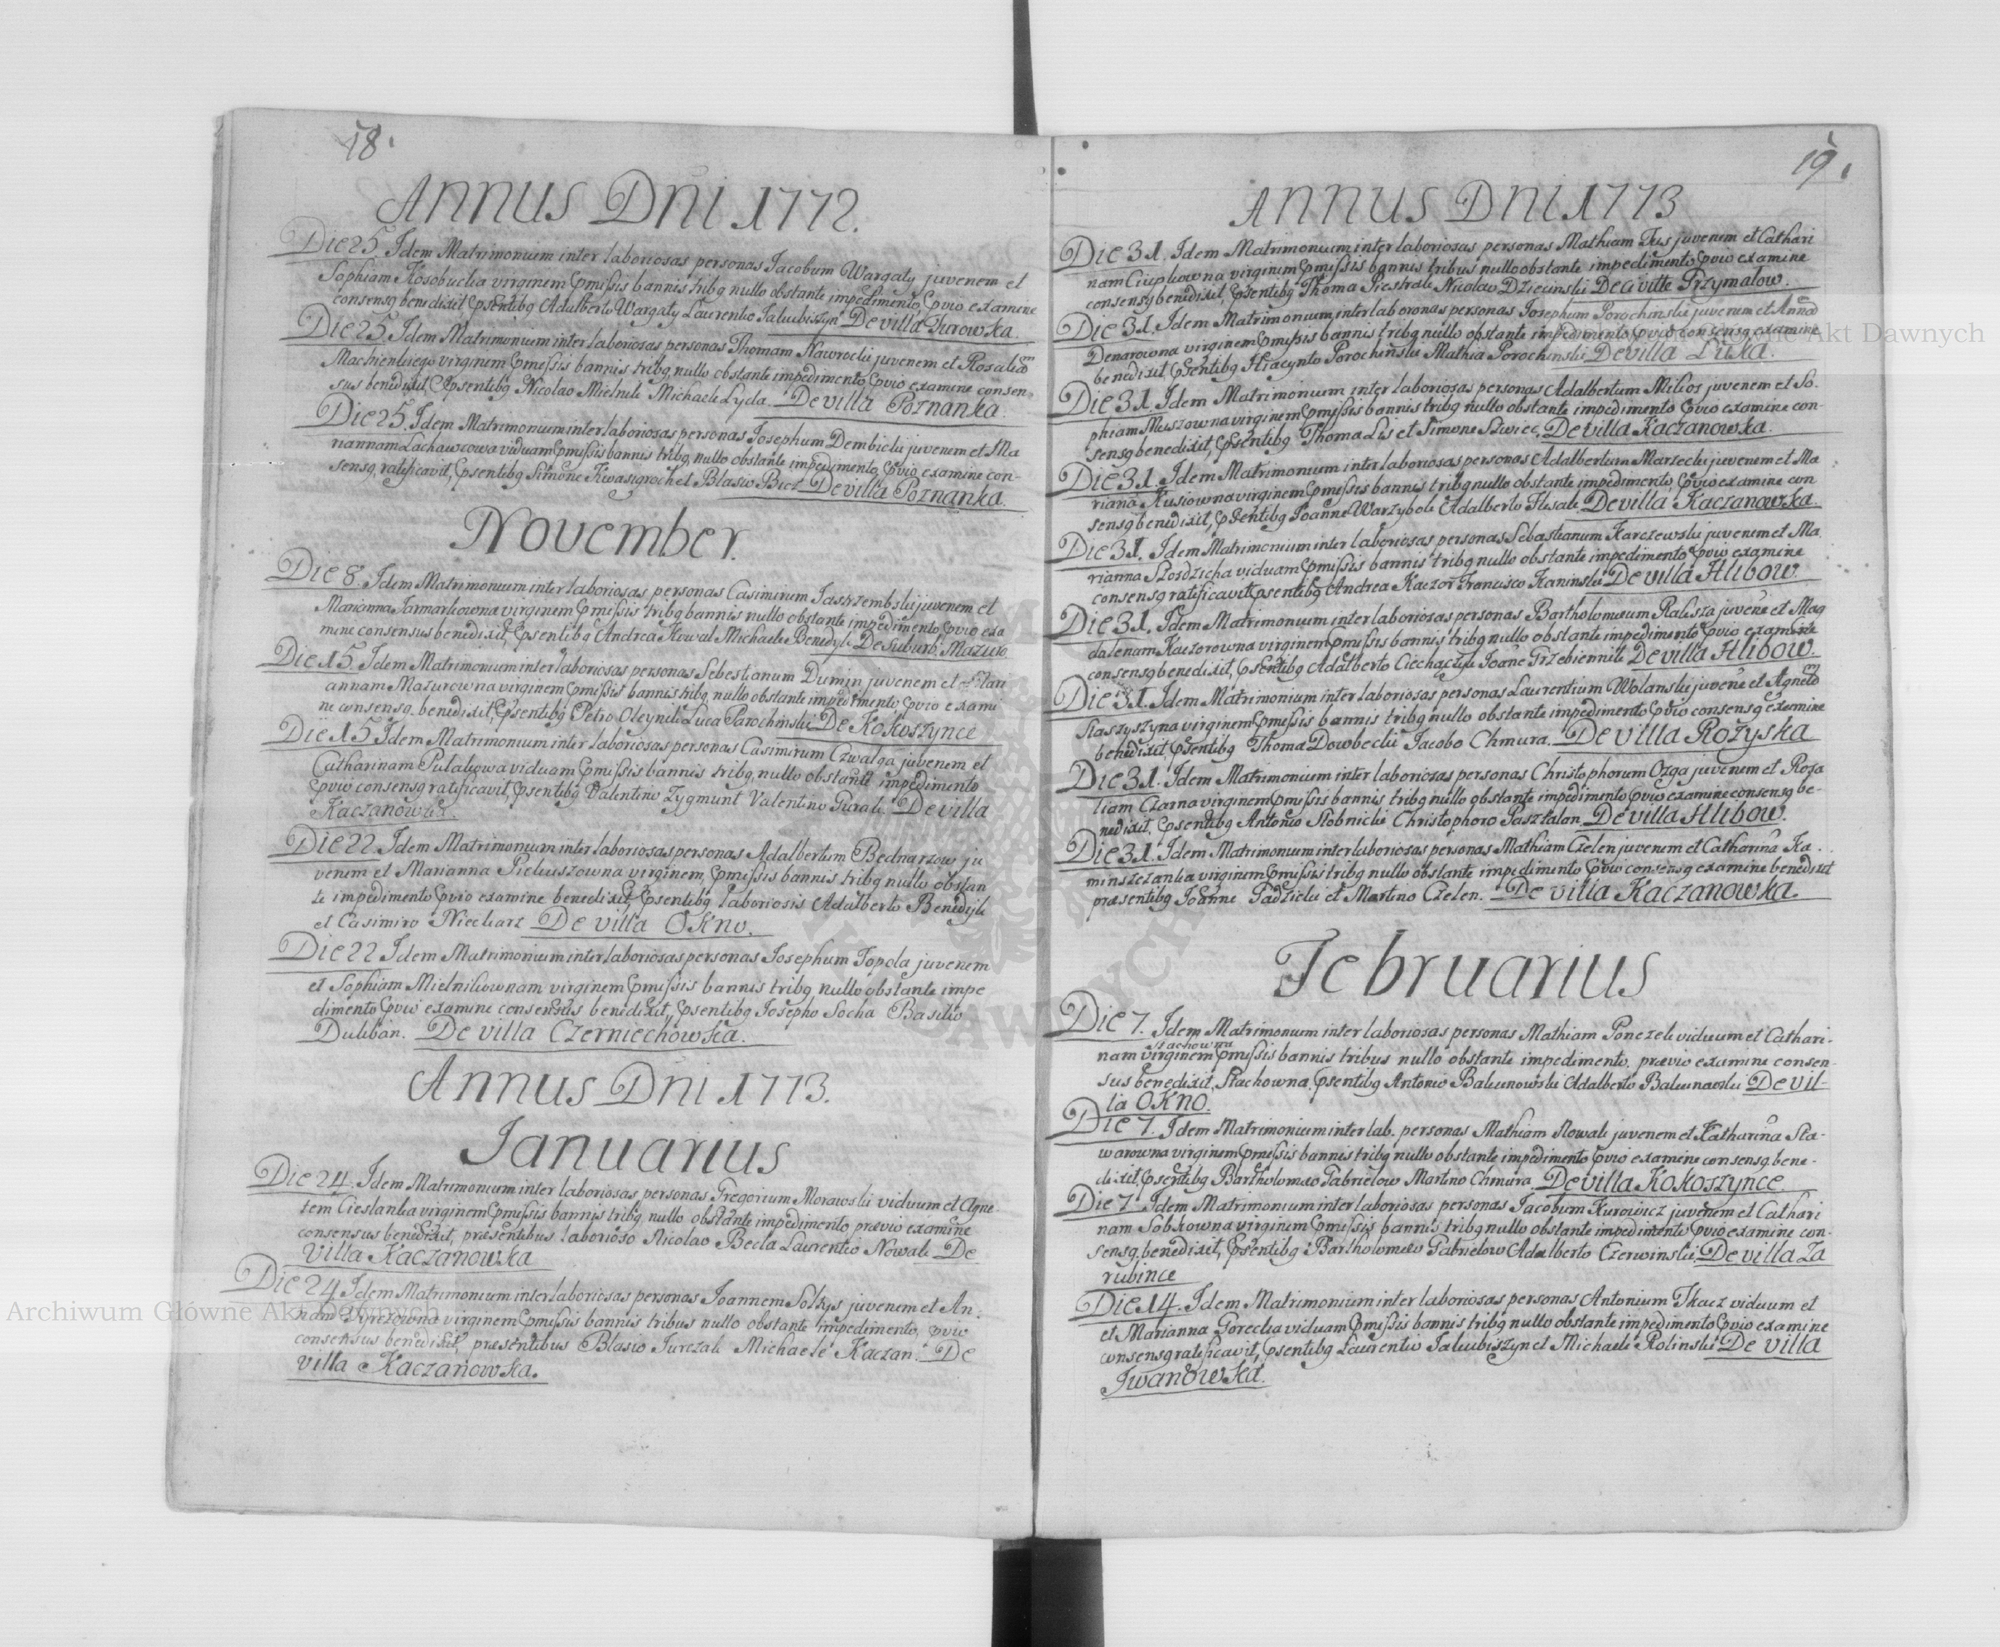 18.
ANNUS DNI 1772.
Die 25. Idem Matrimonium inter laboriosas personas Jacobum Wargaty juvenem et
Sophiam Kosobucka virginem pmissis bannis tribq nullo obstante impedimento, pvio examine
consensq benedixit, psentibq Adalberto Wargaty Laurentio Jakubiszyn De villa Turowka.
Die 25. Idem Matrimonium inter laboriosas personas Thomam Nawrocki juvenem et Rosaliam
virginem pmissis bannis tribq nullo obstante impedimento pvio examine consen-
sus benedixit, psentibq Nicolao Mielnik Michaele Lyda. De villa Poznanka.
Die 25. Idem Matrimonium inter laboriosas personas Josephum Dembicki juvenem et Ma
riannam Lachawcowa viduam pmissis bannis tribq nullo obstante impedimento, pvio examine con-
sensq ratificavit, psentibq Simone et Blasio Biez De villa Poznanka.
November.
Die 8. Idem Matrimonium inter laboriosas personas Casimirum Jastrzembski juvenem et
Marianna Jarmarkowna virginem pmissis tribq bannis nullo obstante impedimento pvio exa
mine consensus benedixit, psentibq Andrea Kowal Michaele Benedyk De Suburb. Mazuro
Die 15. Idem Matrimonium inter laboriosas personas Sebestianum Dumin juvenem et Mari
annam Mazurowna virginem pmissis bannis tribq nullo obstante impedimento pvio exami
ne consensq benedixit, psentibq Petro Oleynik Luca Parochinski De Kokoszynce
Die 15 Idem Matrimonium inter laboriosas personas Casimirum Czwalga juvenem et
Catharinam Pulakowa viduam pmissis bannis tribq, nullo obstante impedimento
pvio consensq ratificavit, psentibq Valentino Zygmunt Valentino Gurak De villa
Kaczanowka.
Die 22 Idem Matrimonium inter laboriosas personas Adalbertum Bednarzow ju
venem et Marianna virginem, pmissis bannis tribq nullo obstan
te impedimento pvio examine benedixit, psentibq laboriosis Adalberto Benedyk
et Casimiro Niekarz De villa OKno.
Die 22 Idem Matrimonium inter laboriosas personas Josephum Topola juvenem
et Sophiam Mielnikownam virginem pmissis bannis tribq nullo obstante impe
dimento pvio examine consensus benedixit, psentibq Josepho Socha Basilio
Duliban. De villa Czerniechowka.
Annus Dni 1773.
Januarius
Die 24. Idem Matrimonium inter laboriosas personas Gregorium Morawski viduum et Agne
tem Cieslanka virginem pmissis bannis tribq nullo obstante impedimento prævio examine
consensus benedixit, præsentibus laborioso Nicolao Becla Laurentio Nowak De
villa Kaczanowka
Die 24 Idem Matrimonium inter laboriosas personas Joannem Soltys juvenem et An-
nam virginem pmissis bannis tribus nullo obstante impedimento, pvio
consensus benedixit, præsentibus Blasio Jurczak Michaele Kaczan. De
villa Kaczanowka.
19.
ANNUS DNI 1773
Die 31. Idem Matrimonium inter laboriosas personas Mathiam Tus juvenem et Cathari
nam Ciupkowna virginem pmissis bannis tribus nullo obstante impedimento pvio examine
consensq benedixit, psentibq Thoma Siestrak Nicolao Dziecinski De civitte Grzymalow.
Die 31. Idem Matrimonium inter laboriosas personas Josephum Porochinski juvenem et Annam
Denarowna virginem pmissis bannis tribq nullo obstante impedimento pvio consensq examine
benedixit, psentibq Hiacynto Porochinski Mathia Porochinski De villa Luka.
Die 31. Idem Matrimonium inter laboriosas personas Adalbertum Mikos juvenem et So.
phiam Muszowna virginem pmissis bannis tribq nullo obstante impedimento pvio examine con-
sensq benedixit, psentibq Thoma Lis et Simone Siwiec, De villa Kaczanowka.
Die 31. Idem Matrimonium inter laboriosas personas Adalbertum Marzecki juvenem et Ma
riana Kusiowna virginem pmissis bannis tribq nullo obstante impedimento, pvio examine con
sensq benedixit, psentibq Joanne Warzybok Adalberto De villa Kaczanowka.
Die 31. Idem Matrimonium inter laboriosas personas Sebastianum Karczewski juvenem et Ma
rianna viduam pmissis bannis tribq nullo obstante impedimento pvio examine
consensq ratificavit psentibq Andrea Kaczor Francisco Kaninski De villa Hlibow.
Die 31. Idem Matrimonium inter laboriosas personas Bartholomeum Kalisza juvene et Mag
dalenam Kaczorowna virginem pmissis bannis tribq nullo obstante impedimento pvio examine
consensq benedixit, psentibq Adalberto Joane Grzebiennik De villa Hlibow.
Die 31. Idem Matrimonium inter laboriosas personas Laurentium Wolanski juvene et Agnetem
Staszyszyna virginem pmissis bannis tribq nullo obstante impedimento pvio consensq examine
benedixit, psentibq Thoma Dowbecki Jacobo Chmura. De villa Rożyska
Die 31. Idem Matrimonium inter laboriosas personas Christophorum Ozga juvenem et Roza
liam Czarna virginem pmissis bannis tribq nullo obstante impedimento pvio examine consensq be-
nedixit, psentibq Antonio Slobnicki Christophoro Pasztalan De villa Hlibow.
Die 31. Idem Matrimonium inter laboriosas personas Mathiam Czelen juvenem et Catharina Ka.
minszczanka virginem pmissis tribq nullo obstante impedimento pvio consensq examine benedixit
præsentibq Joanne Gadzicki et Martino Czelen. De villa Kaczanowka.
Februarius
Die 7. Idem Matrimonium inter laboriosas personas Mathiam Ponczek viduum et Cathari-
Stachowna
nam virginem pmissis bannis tribus nullo obstante impedimento, prævio examine consen-
sus benedixit, Stachowna, psentibq Antonio Balunowski Adalberto De vil-
la OKNO.
Die 7. Idem Matrimonium inter lab. personas Mathiam Nowak juvenem et Katharina Sta-
warowna virginem pmissis bannis tribq nullo obstante impedimento pvio examine consensq bene-
dixit, psentibq Bartholomæo Gabrielow Martino Chmura. De villa Kokoszynce.
Die 7 Idem Matrimonium inter laboriosas personas Jacobum Kurowicz juvenem et Cathari
nam Sobkowna virginem pmissis bannis tribq nullo obstante impedimento pvio examine con-
sensq benedixit, psentibq Bartholomeo Gabrielow Adalberto Czerwinski. De villa Za
rubince
Die 14. Idem Matrimonium inter laboriosas personas Antonium Tkacz viduum et
et Marianna Gorecka viduam pmissis bannis tribq nullo obstante impedimento pvio examine
consensq ratificavit, psentibq Laurentio Jakubiszyn et Michaele Rolinski De villa
Iwanowka.
Archiwum Główne Akt Dawnych